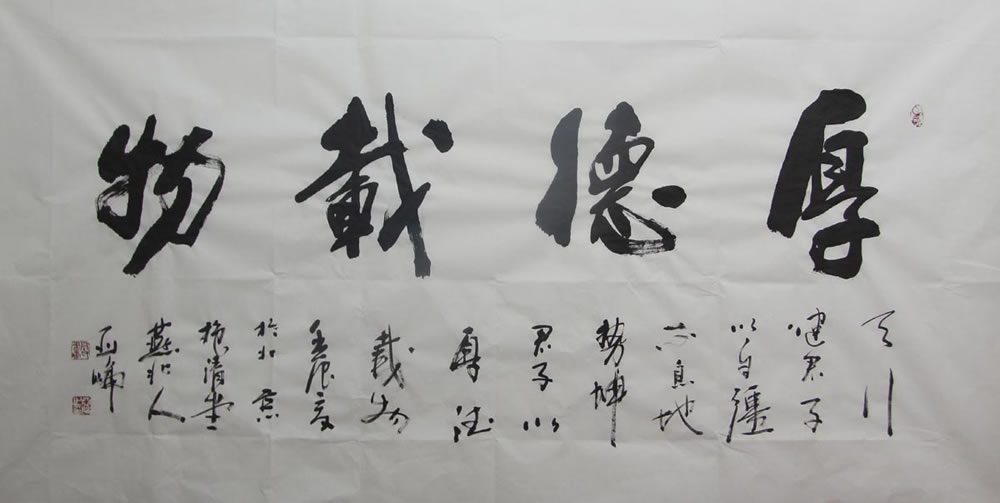 厚德載物
天行
健君子
以自疆
不息地
勢坤
君子以
厚德
載物
壬辰夏
於北京
清堂
燕北人